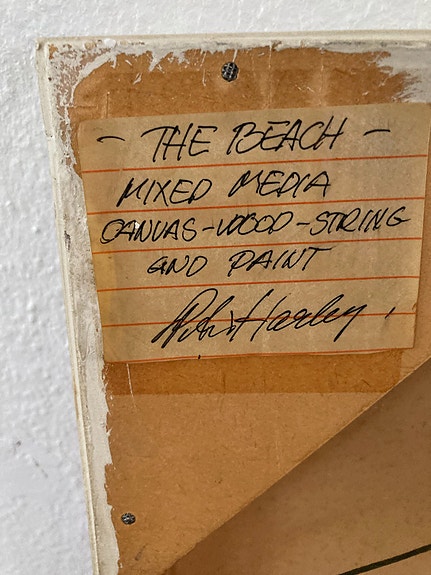 - THE BEACH -
MIXED MEDIA
CANVAS-WOOD-STRING
AND PAINT
Harley